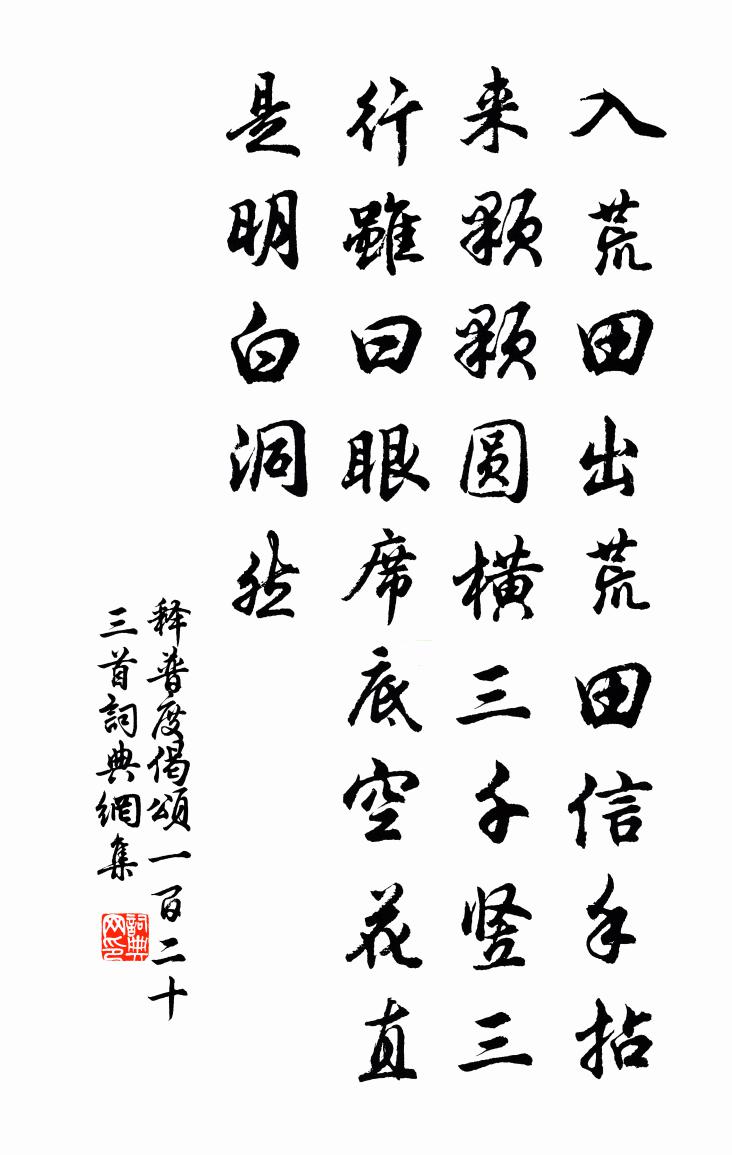 入荒田出荒田信手拈
来颗颗圆横三千竖三
行雖曰眼席底空花直
是明白洞然
释普度偈頌一百二十
三首詞典網集
詞典网印